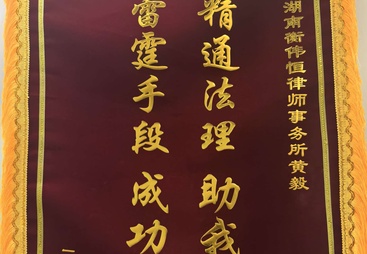 湖南衡伟恒律师事务所黄毅
精通法理 助我
雷霆手段 成功
一